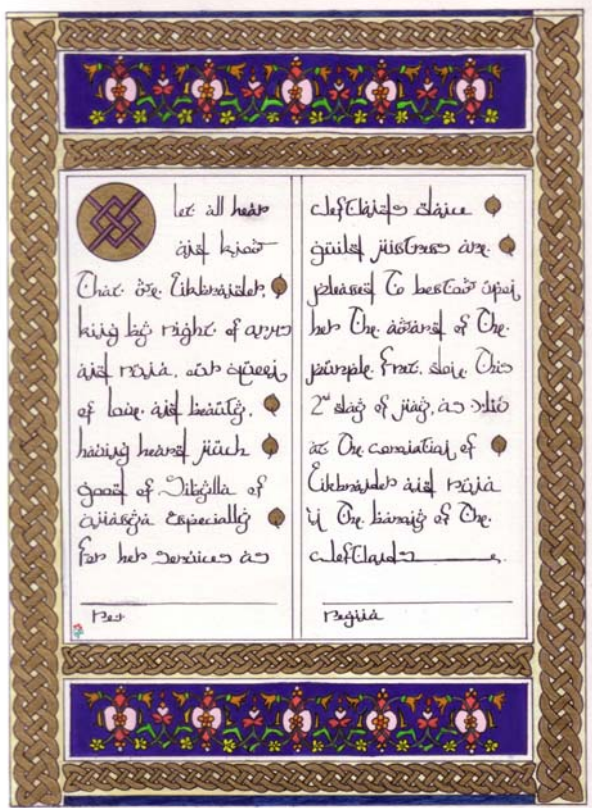 let all hear
and know
that we, Eikbrander,
king by right of arms
and runa, our queen
of love and beauty,
having heard much
good of Sibylla of
amasya especially
for her services as
cleftlands dance
guild mistress are
pleased to bestow upon
her the award of the
purple fret. done this
2nd day of may, as xliv
at the coronation of
Eikbrander and runa
in the barony of the
cleftlands
rex
regina